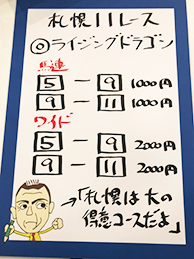 札幌11レース
◎ライジングドラゴン
馬連
5 － 9 1000円
9 － 11 1000円
ワイド
5 － 9 2000円
9 － 11 2000円
→「札幌は大の
得意コースだよ」